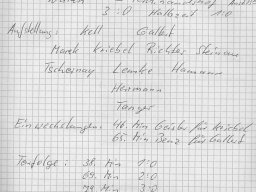 3:0 Halbzeit 1:0
Aufstellung: Kell Galbst
Marek Kriebel Richter Steinau
Tschernay Lemke Hamann
Herrmann
Tanger
Einwechslungen: 46. Min Geisler für Kriebel
65. Min Benz für Galbst
Torfolge: 38. Min 1:0
69. Min 2:0
79. Min 3:0